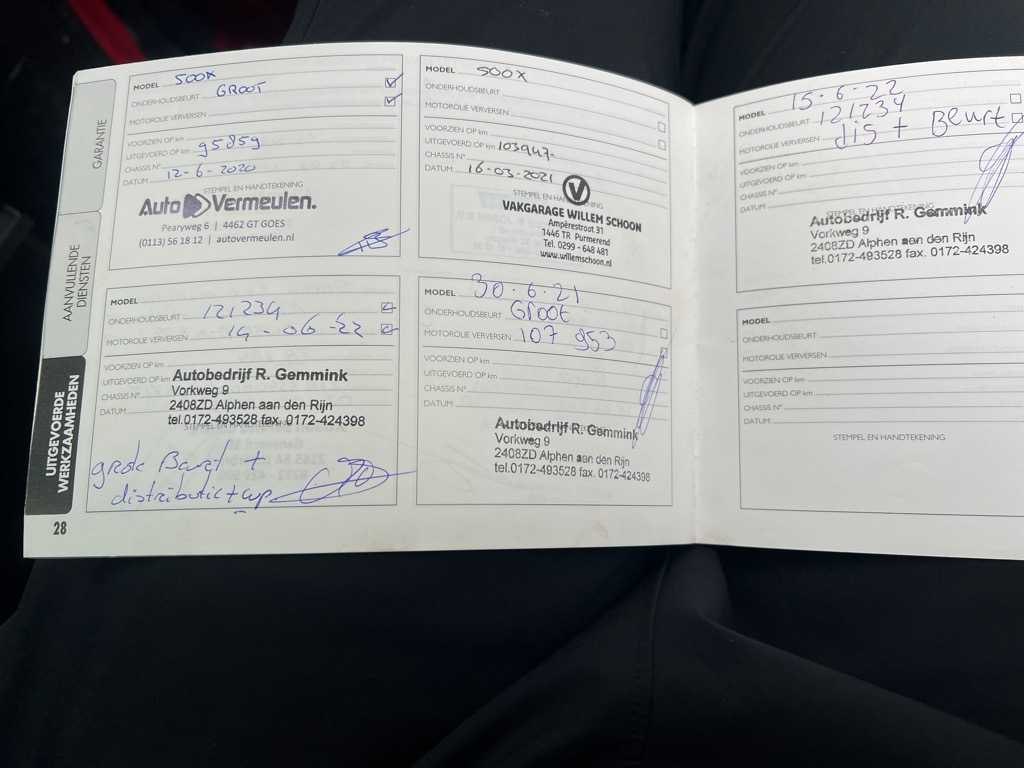 GARANTIE
AANVULLENDE
DIENSTEN
UITGEVOERDE
WERKZAAMHEDEN
28
MODEL 500X
ONDERHOUDSBEURT GROOT
MOTOROLIE VERVERSEN
VOORZIEN OP km
UITGEVOERD OP km 95859
CHASSIS N°
DATUM 12-6-2020
STEMPEL EN HANDTEKENING
Auto Vermeulen.
Pearyweg 6 | 4462 GT GOES
(0113) 56 18 12 | autovermeulen.nl
MODEL 500X
ONDERHOUDSBEURT
MOTOROLIE VERVERSEN
VOORZIEN OP km
UITGEVOERD OP km 103947-
CHASSIS N°
DATUM 16-03-2021
STEMPEL EN HANDTEKENING
VAKGARAGE WILLEM SCHOON
Ampèrestraat 31
1446 TR Purmerend
Tel. 0299 - 648 481
www.willemschoon.nl
MODEL 15-6-22
ONDERHOUDSBEURT 121234
MOTOROLIE VERVERSEN dis + Beurt
VOORZIEN OP km
UITGEVOERD OP km
CHASSIS N°
DATUM
STEMPEL EN HANDTEKENING
Autobedrijf R. Gemmink
Vorkweg 9
2408ZD Alphen aan den Rijn
tel.0172-493528 fax. 0172-424398
MODEL
ONDERHOUDSBEURT 121234
MOTOROLIE VERVERSEN 14-06-22
VOORZIEN OP km
UITGEVOERD OP km
CHASSIS N°
DATUM
Autobedrijf R. Gemmink
Vorkweg 9
2408ZD Alphen aan den Rijn
tel.0172-493528 fax. 0172-424398
grote Beurt +
distributie +
MODEL 30-6-21
ONDERHOUDSBEURT Groot
MOTOROLIE VERVERSEN 107 953
VOORZIEN OP km
UITGEVOERD OP km
CHASSIS N°
DATUM
Autobedrijf R. Gemmink
Vorkweg 9
2408ZD Alphen aan den Rijn
tel.0172-493528 fax. 0172-424398
MODEL
ONDERHOUDSBEURT
MOTOROLIE VERVERSEN
VOORZIEN OP km
UITGEVOERD OP km
CHASSIS N°
DATUM
STEMPEL EN HANDTEKENING